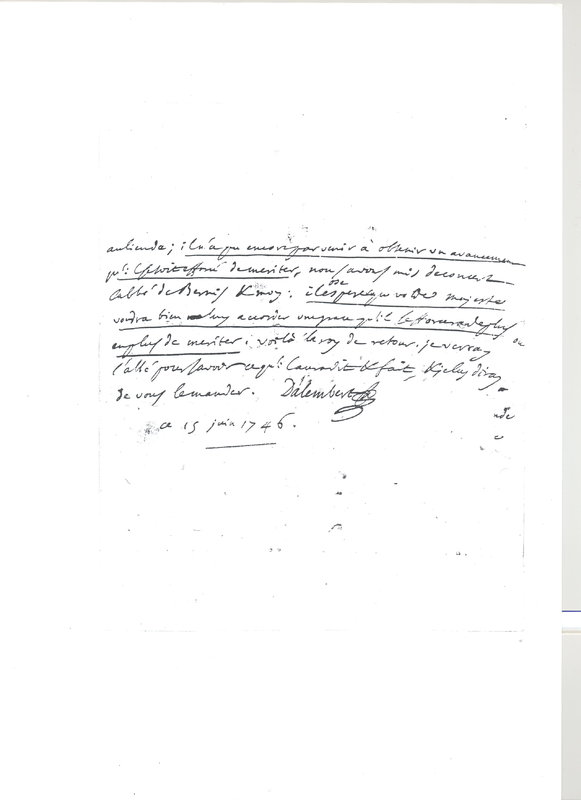 attendu; il n'a pu encore parvenir à obtenir un avancement
qu'il s'est efforcé de meriter, nous avons mis de concert
l'abbé de Bernis & moy: il ose esperer que votre majesté
voudra bien luy accorder une grace qu'il s'efforcera de plus
en plus de meriter; voilà le roy de retour. je verray
l'abbé pour savoir ce qu'il aura dit & fait, & je luy diray
de vous le mander. D'alembert
ce 15 juin 1746.